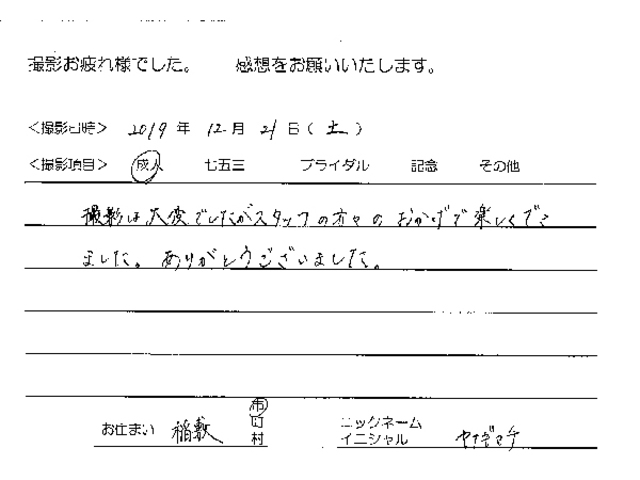 撮影お疲れ様でした。 感想をお願いいたします。
<撮影日時> 2019年 12月 21日(土)
<撮影項目> 成人 七五三 ブライダル 記念 その他
撮影は大変でしたがスタッフの方々のおかげで楽しくでき
ました。ありがとうございました。
お住まい 稲敷 市 町 村
ニックネーム
イニシャル ヤナギマチ